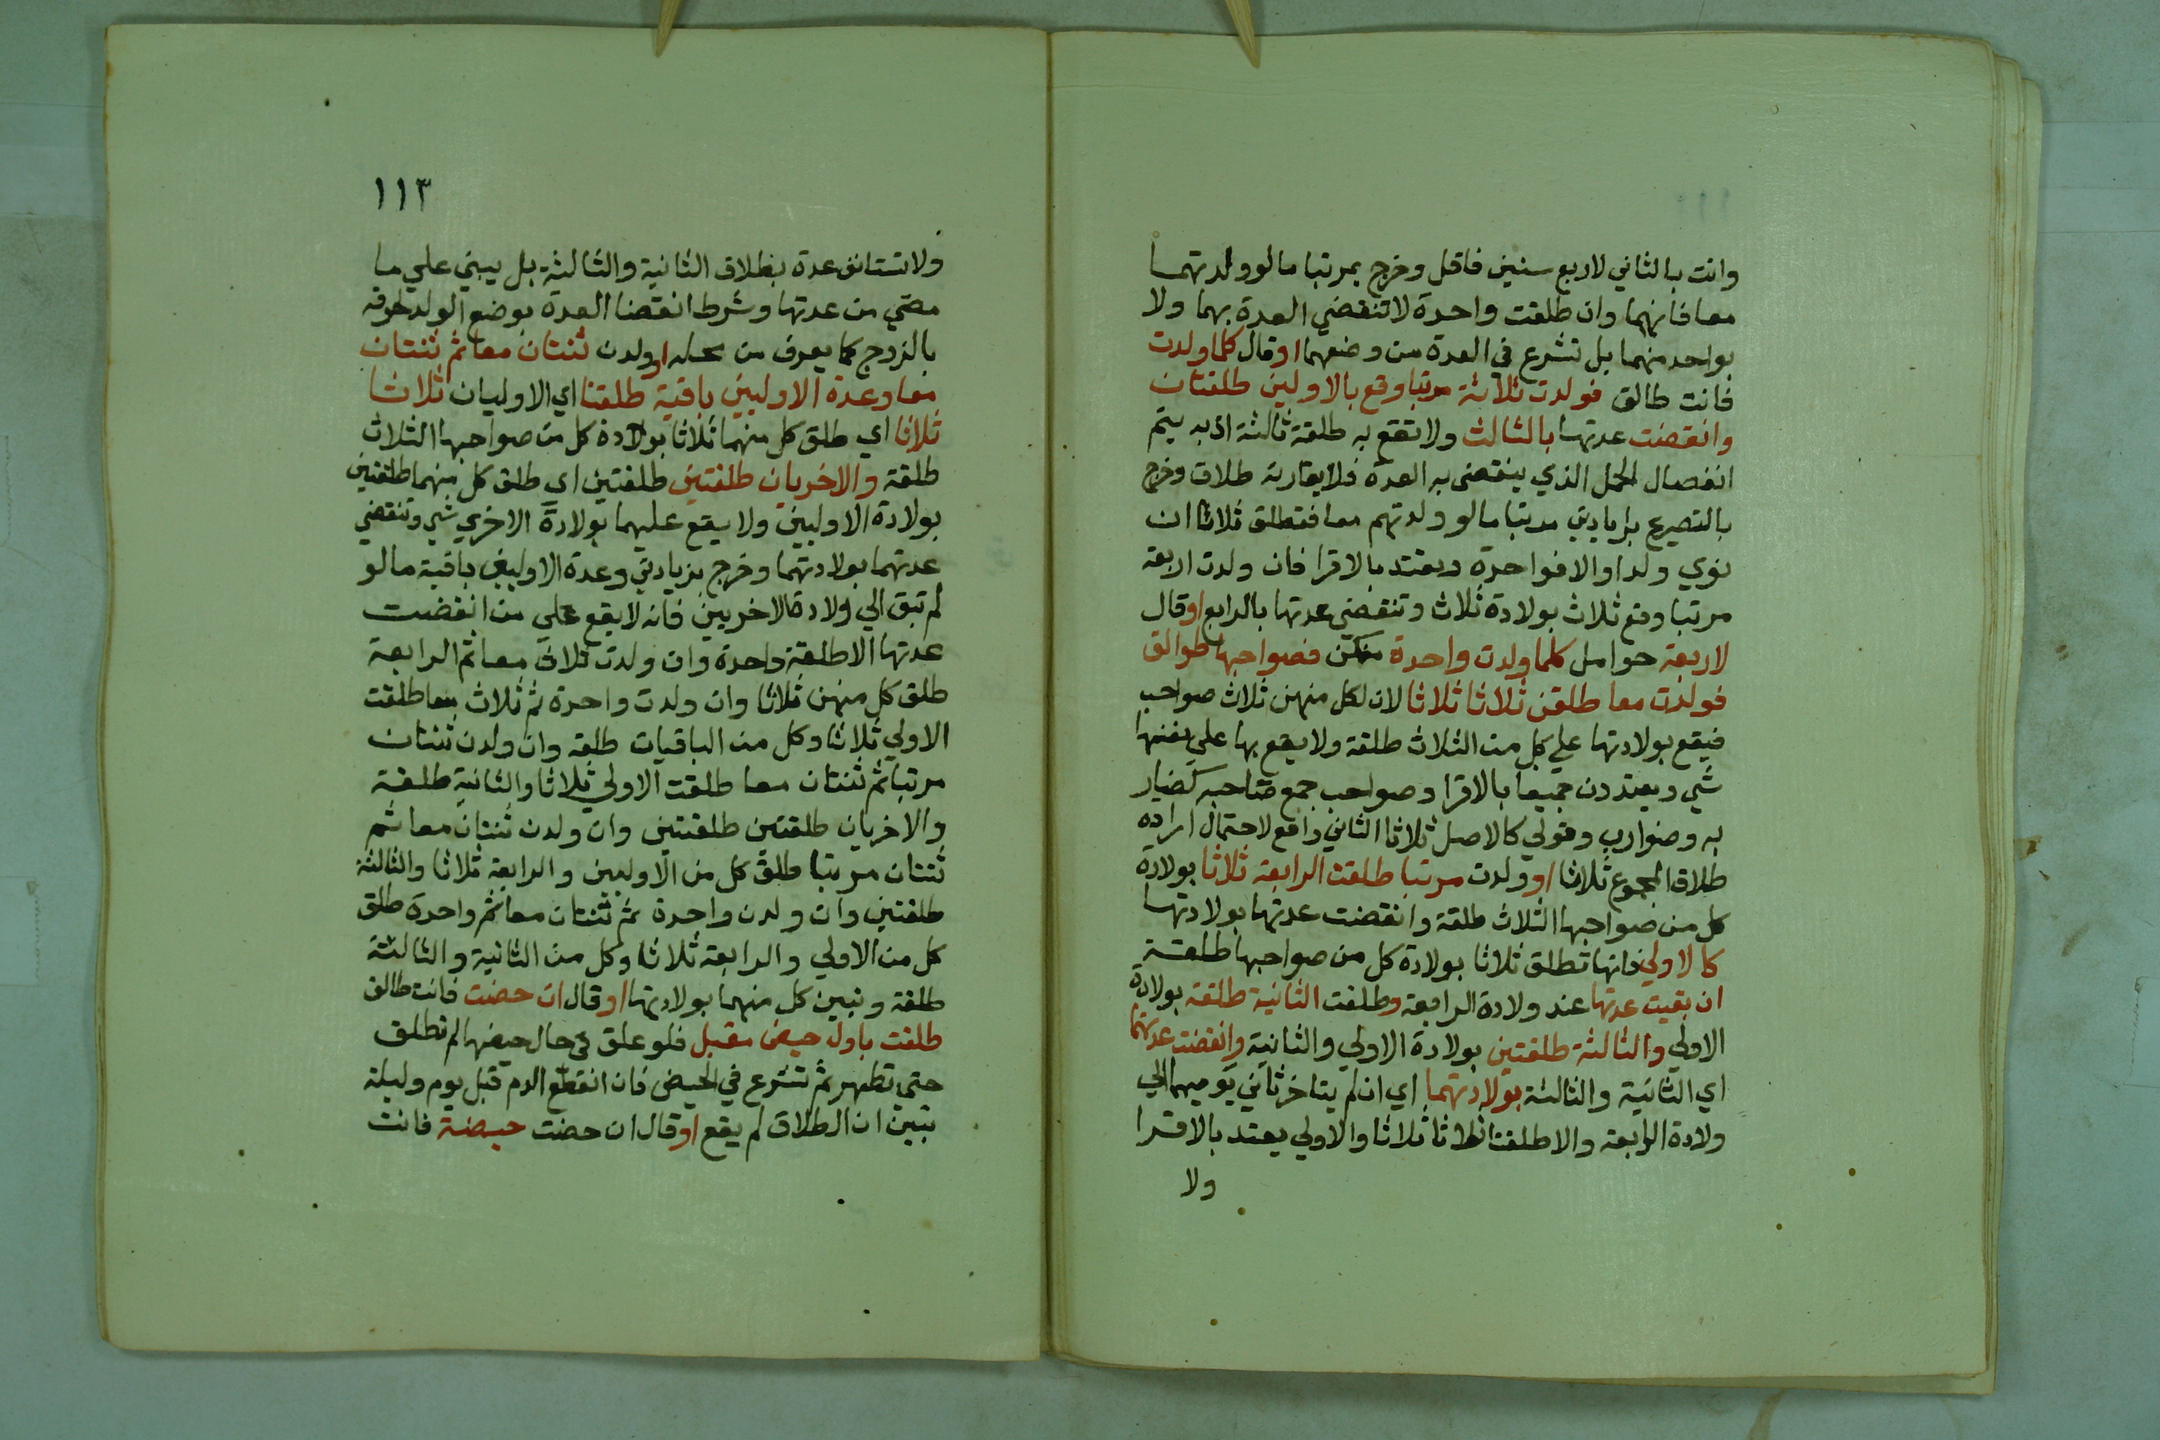 وانت بالثاني لاربع سنين فاقل وخرج بمرتبا ما لو ولدتهما
معا فانهما وان طلقت واحدة لا تنقضي العدة بهما ولا
بواحد منهما بل تشرع في العدة من وضعهما او قال كلما ولدت
فانت طالق فولدت ثلاثة مرتبا وقع بالاولين طلقتان
وانقضت عدتها بالثالث ولا تقع به طلقة ثالثة اذ به يتم
انفصال الحمل الذي ينقضي به العدة فلا يقارنه طلاق وخرج
بالتصريح بزيادتي مرتبا ما لو ولدتهم معا فتطلق ثلاثا ان
نوي ولدا والا فواحدة وتعتد بالاقرا فان ولدت اربعة
مرتبا وقع ثلاث بولادة ثلاث وتنقضي عدتها بالرابع او قال
لاربعة حوامل كلما ولدت واحدة منكن فصواحبها طوالق
فولدت معا طلقن ثلاثا ثلاثا لان لكل منهن ثلاث صواحب
فيقع بولادتها علي كل من الثلاث طلقة ولا يقع بها علي نفسها
شي ويعتددن جميعا بالاقرا وصواحب جمع صاحبه كضار
به وضوارب وقولي كالاصل ثلاثا الثاني دافع لاحتمال اراده
طلاق المجموع ثلاثا او ولدت مرتبا طلقت الرابعة ثلاثا بولادة
كل من صواحبها الثلاث طلقة وانقضت عدتها بولادتها
كالاولي فانها تطلق ثلاثا بولادة كل من صواحبها طلقة
ان بقيت عدتها عند ولادة الرابعة وطلقت الثانية طلقة بولادة
الاولي والثالثة طلقتين بولادة الاولي والثانية وانقضت عدتهما
اي الثانية والثالثة بولادتهما اي ان لم يتاخر ثاني توميهما الي
ولادة الرابعة والا طلقتا ثلاثا ثلاثا والاولي يعتد بالاقرا
ولا
١١٣
ولا تستانف عدة بطلاق الثانية والثالثة بل يبني علي ما
مضي من عدتها وشرط انقضا العدة بوضع الولد لحوقه
بالزوج كما يعرف من محله او ولدن ثنتان معا ثم ثنتان
معا وعدة الاوليين باقية طلقتا اي الاوليان ثلاثا
ثلاثا اي طلق كل منهما ثلاثا بولادة كل من صواحبها الثلاث
طلقة والاخريان طلقتين طلقتين اي طلق كل منهما طلقتين
بولادة الاوليين ولا يقع عليهما بولادة الاخري شي وتنقضي
عدتهما بولادتهما وخرج بزيادتي وعدة الاوليين باقية ما لو
لم تبق الي ولادة الاخريين فانه لا يقع علي من انقضت
عدتها الا طلقة واحدة وان ولدت ثلاث معا ثم الرابعة
طلق كل منهن ثلاثا وان ولدت واحدة ثم ثلاث معا طلقت
الاولي ثلاثا وكل من الباقيات طلقه وان ولدن ثنتان
مرتبا ثم ثنتان معا طلقت الاولي ثلاثا والثانية طلقة
والاخريان طلقتين طلقتين وان ولدن ثنتان معا ثم
ثنتان مرتبا طلق كل من الاوليين والرابعة ثلاثا والثالثة
طلقتين وان ولدن واحدة ثم ثنتان معا ثم واحدة طلق
كل من الاولي والرابعة ثلاثا وكل من الثانية والثالثة
طلقة وتبين كل منهما بولادتها او قال ان حضت فانت طالق
طلقت باول حيض مقبل فلو علق في حال حيضها لم تطلق
حتي تطهر ثم تشرع في الحيض فان انقطع الدم قبل يوم وليلة
تبين ان الطلاق لم يقع او قال ان حضت حيضة فانت